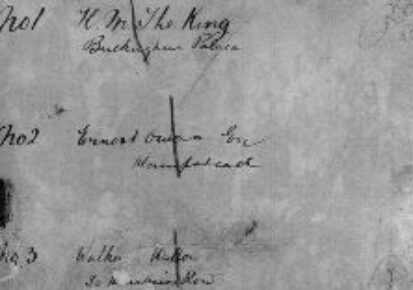 No 1 H. M. The King
Buckingham Palace
No 2 Ernest Owen Esq
Hampstead
No. 3 Walter
Row